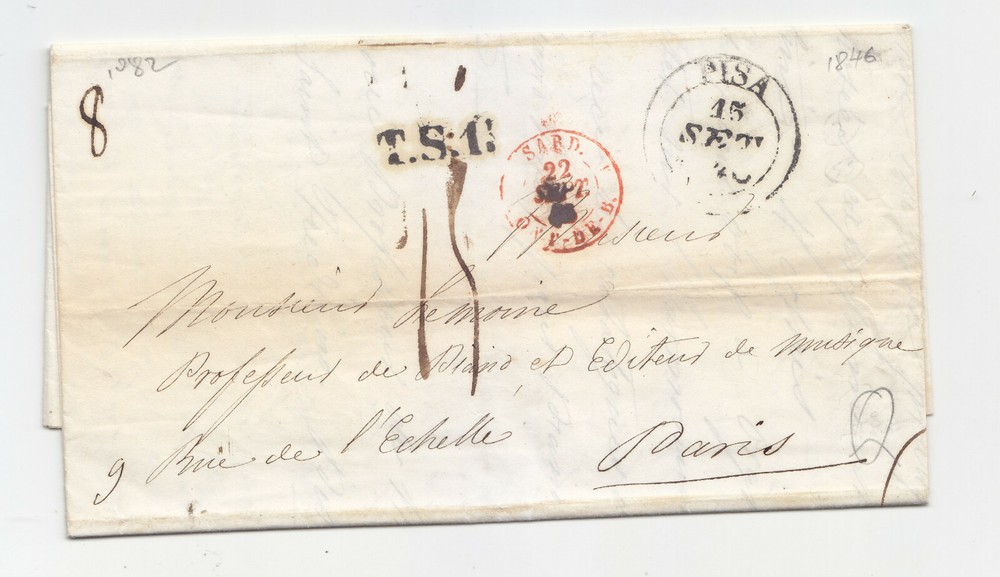 1082
1846
8
PISA
15
SET
T.S.1.
SARD.
22
SEPT.
PT-DE-B.
15
Monsieur
Monsieur Lemoine
Professeur de Piano et Editeur de musique
9 Rue de l'Echelle Paris
2